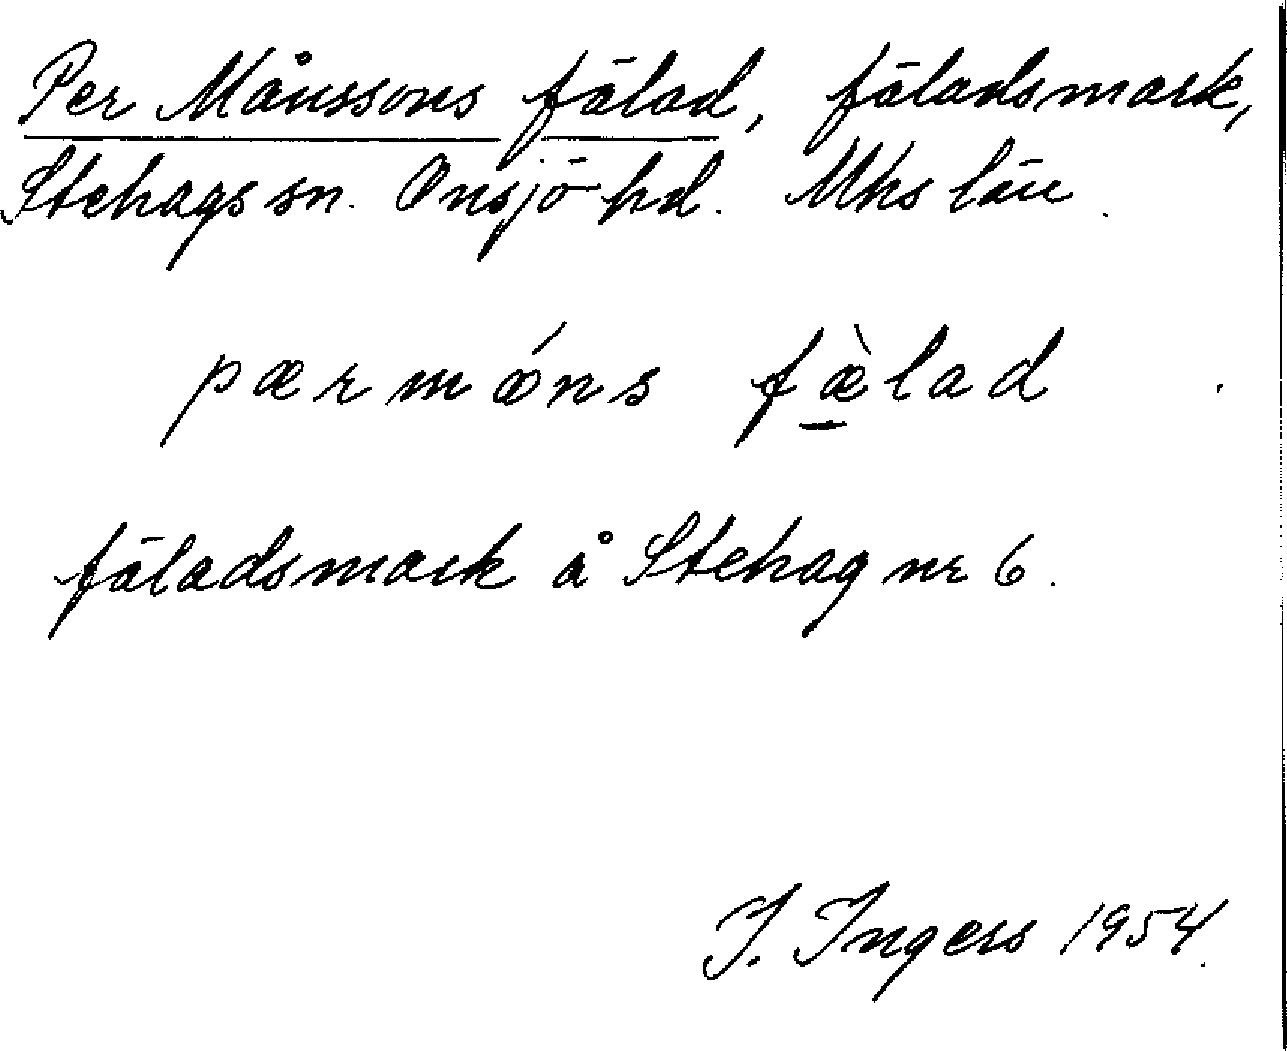 Per Månssons fälad, fäladsmark,
Stehags sn. Onsjö hd. Mhs län.
pærmǿns fæ̱̀lad
fäladsmark å Stehag nr 6.
I. Ingers 1954.